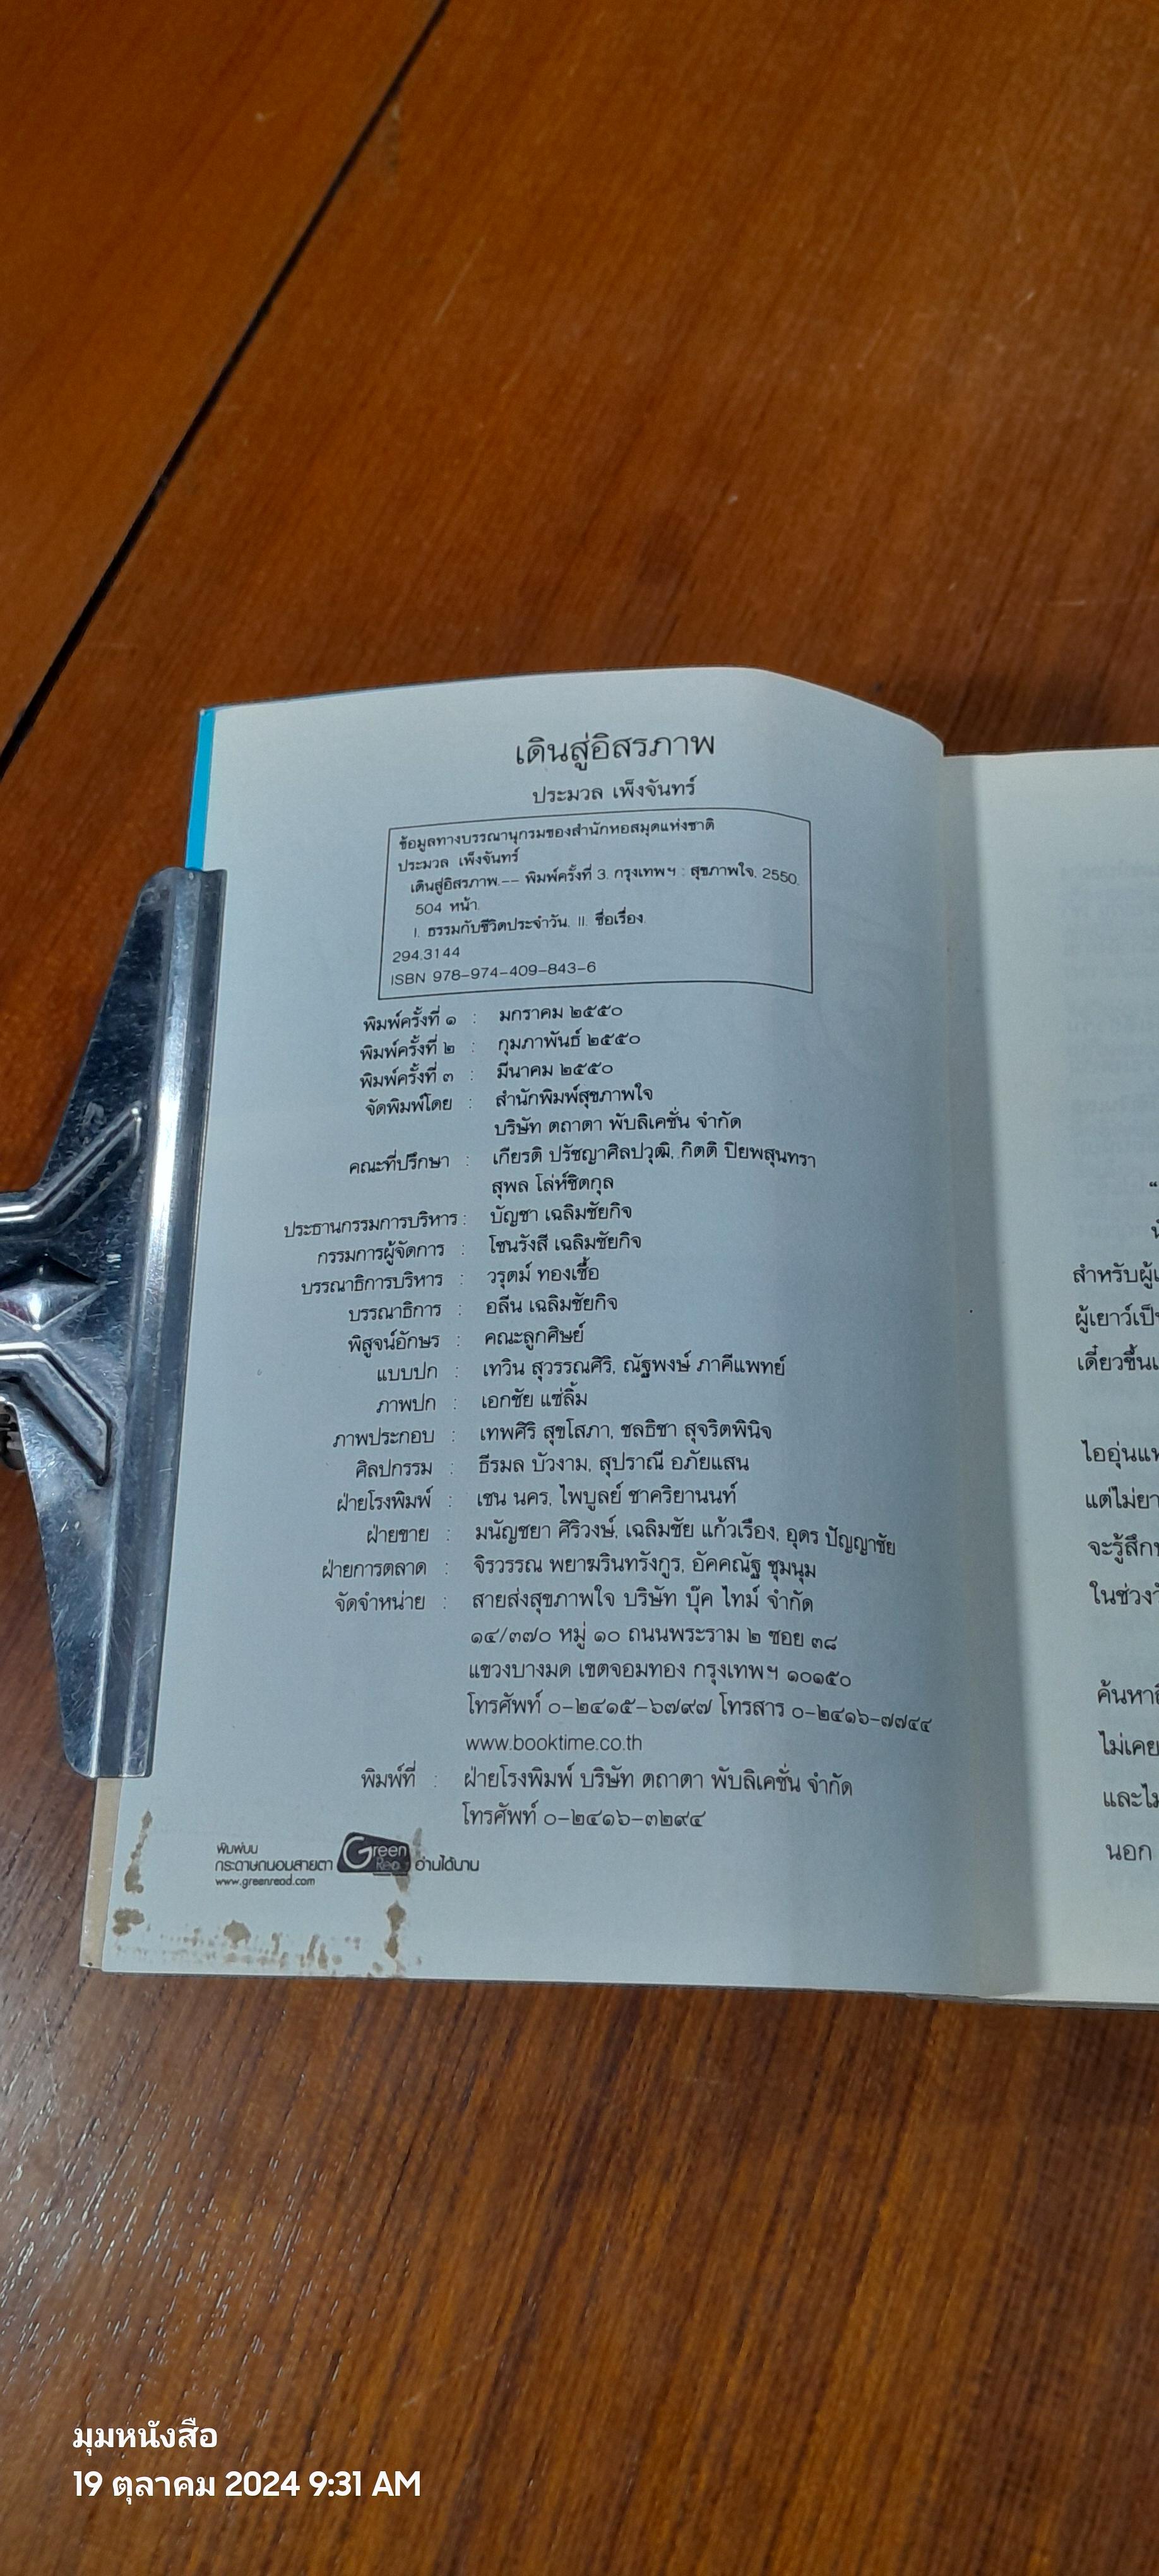 เดินสู่อิสรภาพ
ประมวล เพ็งจันทร์
ข้อมูลทางบรรณานุกรมของสำนักหอสมุดแห่งชาติ
ประมวล เพ็งจันทร์
เดินสู่อิสรภาพ.-- พิมพ์ครั้งที่ 3. กรุงเทพฯ : สุขภาพใจ, 2550.
504 หน้า.
I. ธรรมกับชีวิตประจำวัน. II. ชื่อเรื่อง.
294.3144
ISBN 978-974-409-843-6
พิมพ์ครั้งที่ ๑ : มกราคม ๒๕๕๐
พิมพ์ครั้งที่ ๒ : กุมภาพันธ์ ๒๕๕๐
พิมพ์ครั้งที่ ๓ : มีนาคม ๒๕๕๐
จัดพิมพ์โดย : สำนักพิมพ์สุขภาพใจ
บริษัท ตถาตา พับลิเคชั่น จำกัด
คณะที่ปรึกษา : เกียรติ ปรัชญาศิลปวุฒิ, กิตติ ปิยพสุนทรา
สุพล โล่ห์ชิตกุล
ประธานกรรมการบริหาร : บัญชา เฉลิมชัยกิจ
กรรมการผู้จัดการ : โชนรังสี เฉลิมชัยกิจ
บรรณาธิการบริหาร : วรุตม์ ทองเชื้อ
บรรณาธิการ : อลีน เฉลิมชัยกิจ
พิสูจน์อักษร : คณะลูกศิษย์
แบบปก : เทวิน สุวรรณศิริ, ณัฐพงษ์ ภาคีแพทย์
ภาพปก : เอกชัย แซ่ลิ้ม
ภาพประกอบ : เทพศิริ สุขโสภา, ชลธิชา สุจริตพินิจ
ศิลปกรรม : ธีรมล บัวงาม, สุปราณี อภัยแสน
ฝ่ายโรงพิมพ์ : เชน นคร, ไพบูลย์ ชาคริยานนท์
ฝ่ายขาย : มนัญชยา ศิริวงษ์, เฉลิมชัย แก้วเรือง, อุดร ปัญญาชัย
ฝ่ายการตลาด : จิรวรรณ พยาฆรินทรังกูร, อัคคณัฐ ชุมนุม
จัดจำหน่าย : สายส่งสุขภาพใจ บริษัท บุ๊ค ไทม์ จำกัด
๑๔/๓๗๐ หมู่ ๑๐ ถนนพระราม ๒ ซอย ๓๘
แขวงบางมด เขตจอมทอง กรุงเทพฯ ๑๐๑๕๐
โทรศัพท์ ๐-๒๔๑๕-๖๗๙๗ โทรสาร ๐-๒๔๑๖-๗๗๔๔
www.booktime.co.th
พิมพ์ที่ : ฝ่ายโรงพิมพ์ บริษัท ตถาตา พับลิเคชั่น จำกัด
โทรศัพท์ ๐-๒๔๑๖-๓๒๙๔
พิมพ์บน
กระดาษถนอมสายตา Green Read อ่านได้นาน
www.greenread.com
สำหรับผู้
ผู้เยาว์เป็
เดี๋ยวขึ้น
ไออุ่นแ
แต่ไม่ยา
จะรู้สึก
ในช่วง
ค้นหา
ไม่เคย
และไม
นอก
มุมหนังสือ
19 ตุลาคม 2024 9:31 AM